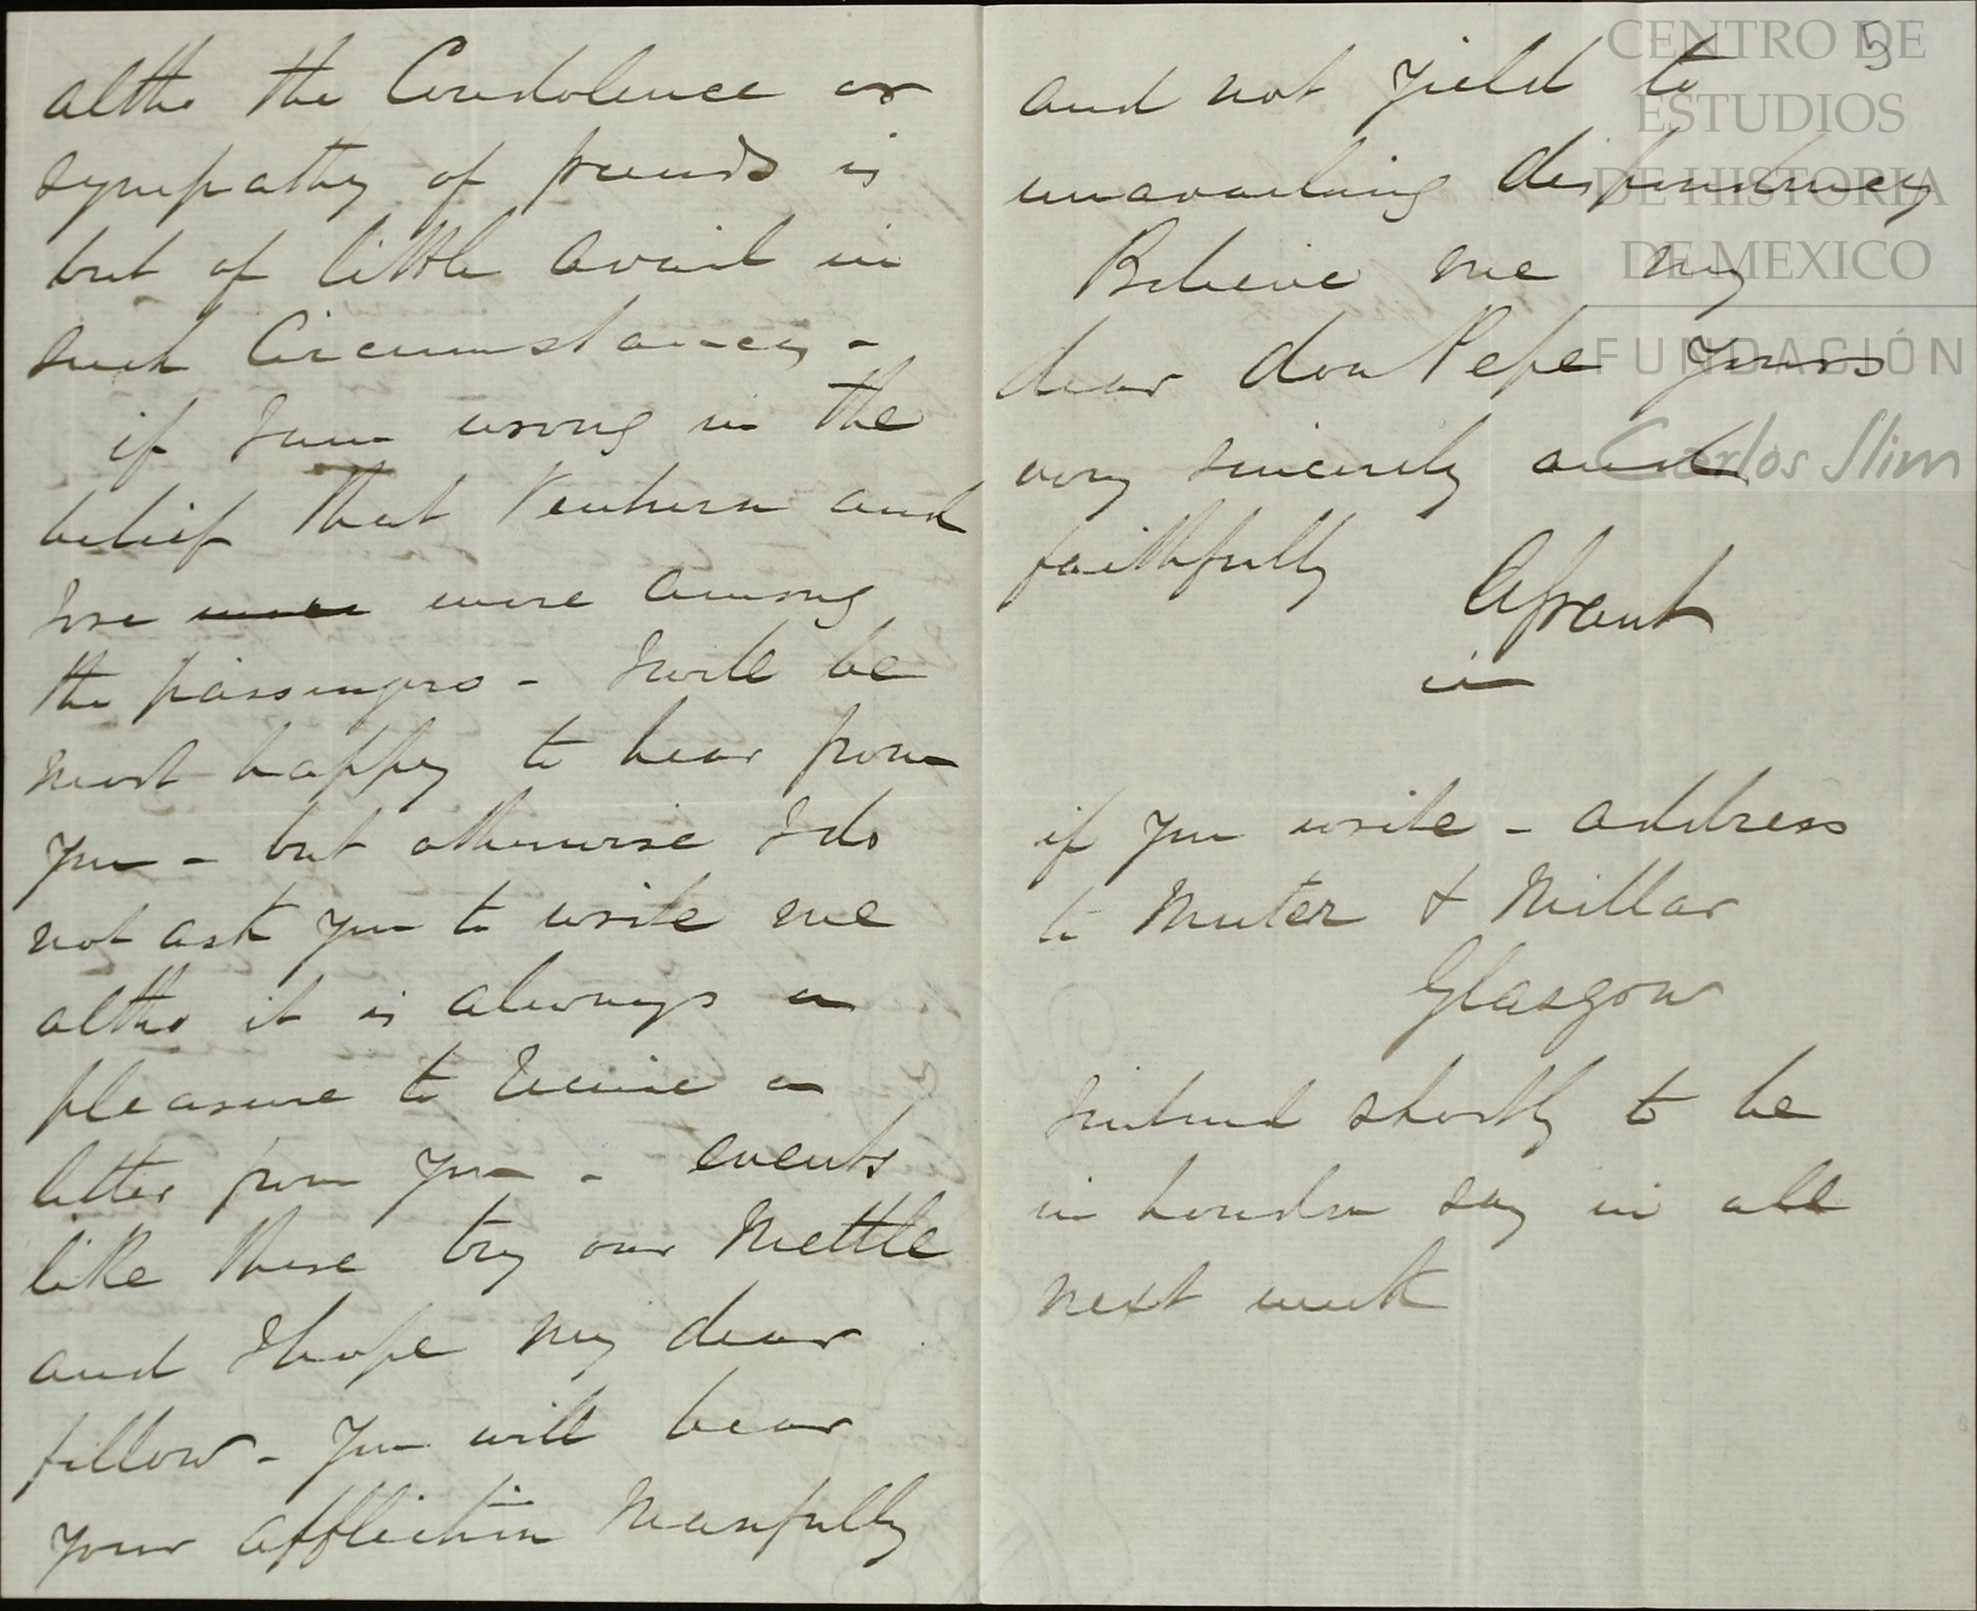 altho the Condolence or
sympathy of friends is
but of little avail in
such Circumstances -
if I am wrong in the
belief that Ventura and
Jose were among
the passengers - I will be
most happy to hear from
you - but otherwise I do
not ask you to write me
altho it is always a
pleasure to receive a
letter from you - events
like these try our Mettle
and I hope my dear
fellow - you will bear
your affliction Manfully
5
and not yield to
unavailing despondency
Believe me my
dear don Pepe yours
very sincerely and
faithfully
if you write - address
to Muter & Millar
Glasgow
I intend shortly to be
in London say in all
next week
CENTRO DE
ESTUDIOS
DE HISTORIA
DE MEXICO
FUNDACIÓN
Carlos Slim